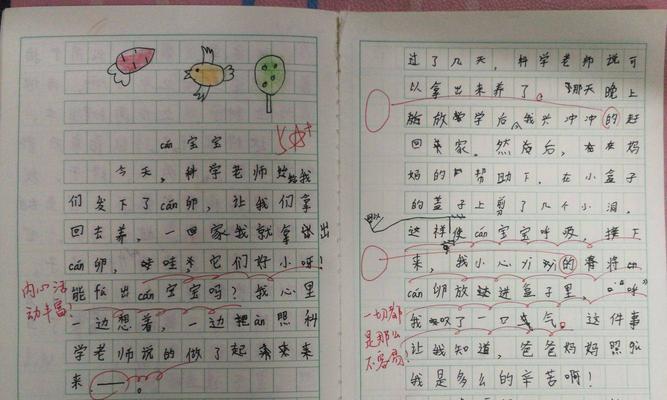 cán 宝宝
5☆+
今天,科学老师给我
们发下了cán卵,让我们拿
回去养,一回家我就拿出
cán卵,哇哇,它们好小呀!
能fū出cán宝宝吗?我心里
一边想着,一边àn照科
学老师说的做了起来
来——。
内心活
动丰富!
过了几天,科学老师说可
以拿出来养了。那天晚上
放学后,我兴冲冲的赶
回家。然后,在妈
妈的帮助下,在小盒子
的盖子上剪了几个小洞,
这样使cán宝宝呼吸,接下
来,我小心yì yì的将
cán卵放进盒子里,"呼"
我叹了一口气。这件事
让我知道,爸爸妈妈照顾
我是多么的辛苦啊!
可以
一切都
是那么
不容易!